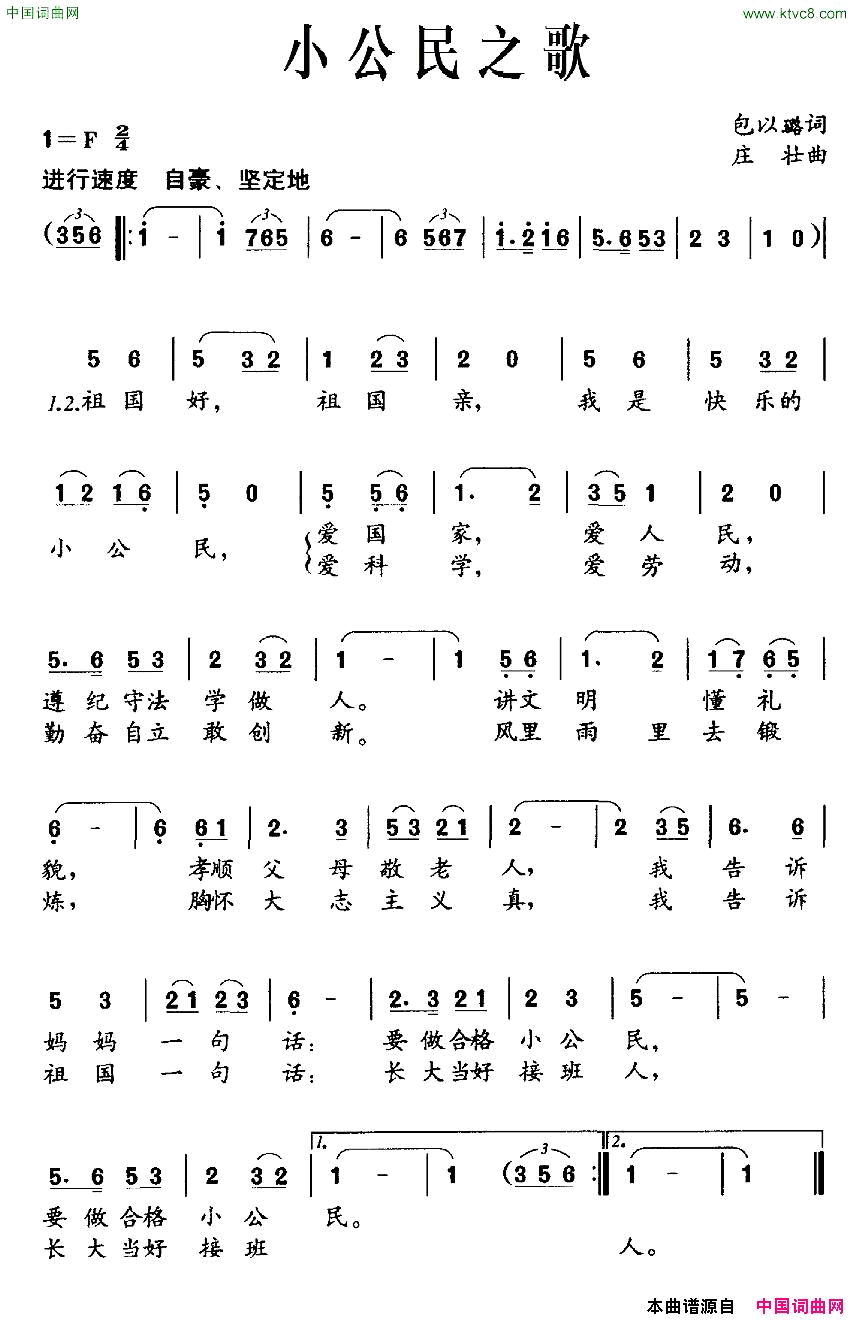 中国词曲网
www.ktvc8.com
小公民之歌
1=F 2/4
包以璐词
庄 壮曲
进行速度 自豪、坚定地
(356 ‖: i - | i 765 | 6 - | 6 567 | i. 2 i 6 | 5. 6 5 3 | 2 3 | 1 0 )|
5 6 | 5 3 2 | 1 2 3 | 2 0 | 5 6 | 5 3 2 |
1.2.祖国 好, 祖国 亲, 我是 快乐的
1 2 1 6 | 5 0 | 5 5 6 | 1. 2 | 3 5 1 | 2 0 |
小公 民, 爱国 家, 爱人 民,
爱科 学, 爱劳 动,
5. 6 5 3 | 2 3 2 | 1 - | 1 5 6 | 1. 2 | 1 7 6 5 |
遵纪守法 学做 人。 讲文 明 懂礼
勤奋自立 敢创 新。 风里 雨里 去锻
6 - | 6 6 1 | 2. 3 | 5 3 2 1 | 2 - | 2 3 5 | 6. 6 |
貌, 孝顺 父母 敬老 人, 我 告诉
炼, 胸怀 大志 主义 真, 我 告诉
5 3 | 2 1 2 3 | 6 - | 2. 3 2 1 | 2 3 | 5 - | 5 - |
妈妈 一句 话: 要做合格 小公 民,
祖国 一句 话: 长大当好 接班 人,
1. 2.
5. 6 5 3 | 2 3 2 | 1 - | 1 (3 5 6 :‖ 1 - | 1 ‖
要做合格 小公 民。
长大当好 接班 人。
本曲谱源自 中国词曲网